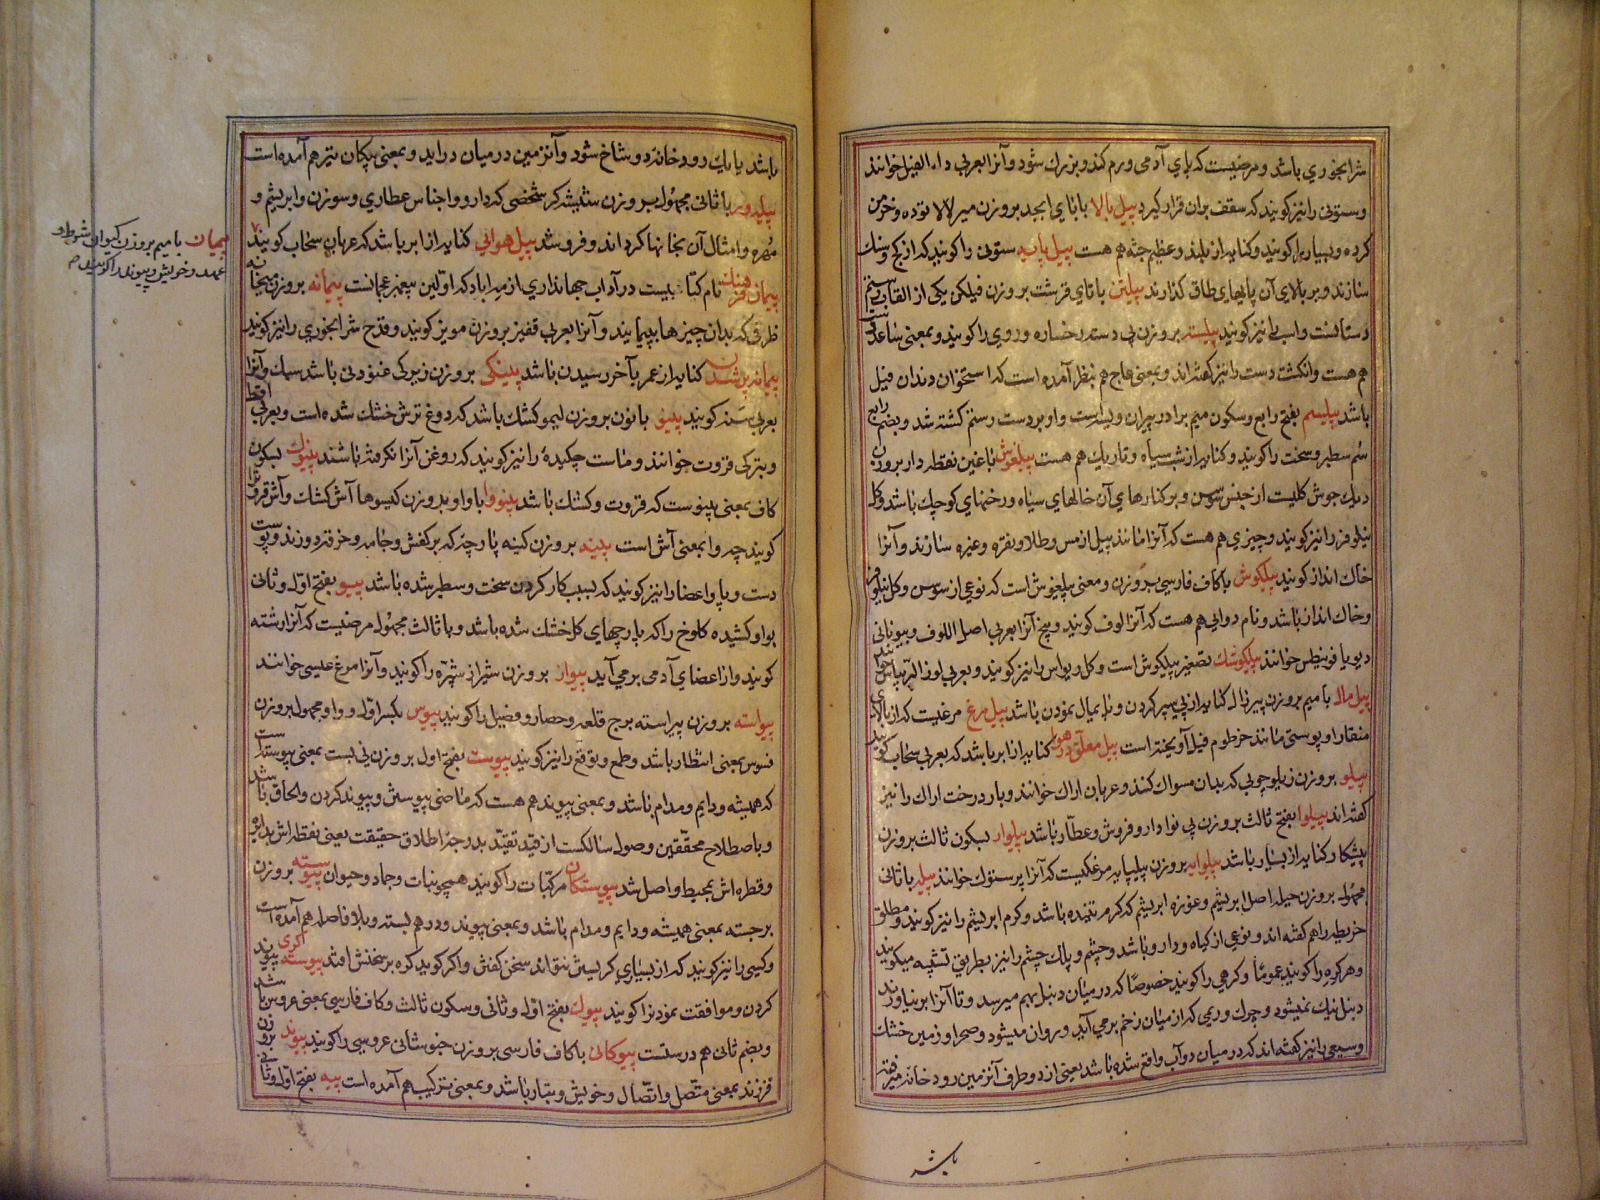 شرابخوري باشد و مرضیست که پاي آدمی ورم کند و بزرك شود و آنرا بعربی داء الفیل خوانند
و ستونی را نیز کویند که سقف بران قرار کیرد پیل بالا با بای ابجد بروزن میر لالا توده و خرمن
کرده و بسیار را کویند و کنایه از بلند و عظیم جثه هم هست پیل پایه ستونی را کویند که از کچ و سنك
سازند و بر بالای آن پایهای طاق کذارند پیلتن با تای قرشت بروزن فیلکن یکی از القاب رستم
دستانست و اسب را نیز کویند پیلسته بروزن بی دسته رخساره و روی را کویند و بمعنی ساعد
هم هست و انکشت دست را نیز کفته اند و بمعنی عاج هم بنظر آمده است که استخوان دندان فیل
باشد پیلسم بفتح رابع و سکون میم برادر پیران ویسه است و او بردست رستم کشته شد و بضم رابع
سُم سطبر و سخت را کویند و کنایه از شب سیاه و تاریك هم هست پیلغوش با غین نقطه دار بروزن
دیك جوش کلیست از جنس سوسن و بر کنارهای آن خالهای سیاه و رخنهای کوچك باشد و کل
نیلوفر را نیز کویند و چیزی هم هست که آنرا مانند بیل از مس و طلا و نقره و غیره سازند و آنرا
خاك انداز کویند پیلکوش با کاف فارسی بروزن و معنی پیلغوش است که نوعی از سوسن و کل نیلوفر
و خاك انداز باشد و نام دوایی هم هست که آنرا لوف کویند و بیخ آنرا بعربی اصل اللوف و بیونانی
خوانند پیلکوشك تصغیر پیلکوش است و کل را نیز کویند و بعربی
پیل مال با میم بروزن پیرزال کنایه از پی سپر کردن و پایمال نمودن باشد پیل مرغ مرغیست که از بالای
منقار او پوستی مانند خرطوم فیل آویخته است پیل معلق در هوا کنایه از ابر باشد که بعربی سحاب کویند
پیلو بروزن زیلو چوبی که بدان مسواك کنند و عربان اراك خوانند و بار درخت اراك را نیز
کفته اند پیلوا بفتح ثالث بروزن بی نوا دارو فروش و عطار باشد پیلوار بسکون ثالث بروزن
پیشکار کنایه از بسیار باشد پیلوایه بروزن پیلپایه مرغکیست که آنرا پرستوك خوانند پیله با ثانی
مجهول بروزن حیله اصل ابریشم و غوزه ابریشم که کرم تنیده باشد و کرم ابریشم را نیز کویند و مطلق
خریطه را هم کفته اند و نوعی از کیاه و دارو باشد و چشم و پلك چشم را نیز بطریق تشبیه میکویند
و هر کره را کویند عموما و کرهی را کویند خصوصا که در میان دنبل بهم میرسد و تا آنرا بر نیاورند
دنبل نیك نمیشود و چرك و ریمی که از میان زخم بر می آید و روان میشود و صحرا و زمین خشك
و سیعی را نیز کفته اند که در میان دو آب واقع شده باشد یعنی از دو طرف آنزمین رودخانه میرفته
باشد
باشد یا یك رودخانه دو شاخ شود و آنزمین درمیان دراید و بمعنی پیکان تیر هم آمده است
پیله ور با ثانی مجهول بروزن شیشه کر شخصی که دارو و اجناس عطاری و سوزن و ابریشم و
مُهره و امثال آن بخانها کرداند و فروشد پیل هوایی کنایه از ابر باشد که عربان سحاب کویند
پیمان فرهنك نام کتابیست در آداب جهانداری از مه اباد که اولین پیغمبر عجمانست پیمانه بروزن میخانه
ظرفی که بدان چیزها بپیمایند و آنرا بعربی قفیز بروزن مویز کویند و قدح شرابخوری را نیز کویند
پیمانه پر شدن کنایه از عمر بآخر رسیدن باشد پینکی بروزن زیرکی غنودنی باشد سبك و آنرا
بعربی سَنه کویند پینو با نون بروزن لیمو کشك باشد که دوغ ترش خشك شده است و بعربی اقط
و بترکی قروت خوانند و ماست چکیده را نیز کویند که روغن آنرا نکرفته باشند پینوك بسکون
کاف بمعنی پینوست که قروت و کشك باشد پینووا با واو بروزن کیسوها آش کشك و آش قروت را
کویند چه وا بمعنی آش است پینه بروزن کینه پارچه که بر کفش و جامه و خرقه دوزند و پوست
دست و پا و اعضا را نیز کویند که بسبب کار کردن سخت و سطبر شده باشد پیو بفتح اول و ثانی
بواو کشیده کلوخ را که پارچهای کل خشك شده باشد و با ثالث مجهول مرضیست که آنرا رشته
کویند و از اعضای آدمی برمی آید پیواز بروزن شیراز شپره را کویند و آنرا مرغ عیسی خوانند
پیواسته بروزن پیراسته برج قلعه و حصار و فصیل را کویند پیوس بکسر اول و واو مجهول بروزن
فسوس بمعنی انتظار باشد و طمع و توقع را نیز کویند پیوست بفتح اول بروزن نی بست بمعنی پیوسته است
که همیشه و دایم و مدام باشد و بمعنی پیوند هم هست که ماضی پیوستن و پیوند کردن و الحاق باشد
و باصطلاح محققین وصول سالکست از قید تقید بدر و جز اطلاق حقیقت یعنی نقطه اش بدایره
و قطره اش بمحیط واصل شد پیوستکان مرکبات را کویند همچو نبات و جماد و حیوان پیوسته بروزن
برجسته بمعنی همیشه و دایم و مدام باشد و بمعنی پیوند و درهم بسته و بلا فاصله هم آمده است
و کسی را نیز کویند که از بسیاری کریستن نتواند سخن کفتن و اکر کوید کره بر سخنش افتد پیوسته اکری پیوند
کردن و موافقت نمودنرا کویند پیوك بفتح اول و ثانی و سکون ثالث و کاف فارسی بمعنی عروس باشد
و بضم ثانی هم درستست پیوکانی با کاف فارسی بروزن خبوشانی عروسی را کویند پیوند بروزن
فرزند بمعنی متصل و اتصال و خویش و تبار باشد و بمعنی ترکیب هم آمده است پیه بفتح اول و ثانی
پیمان با میم بروزن کیوان شرط و
عهد و خویش و پیوند را کویند